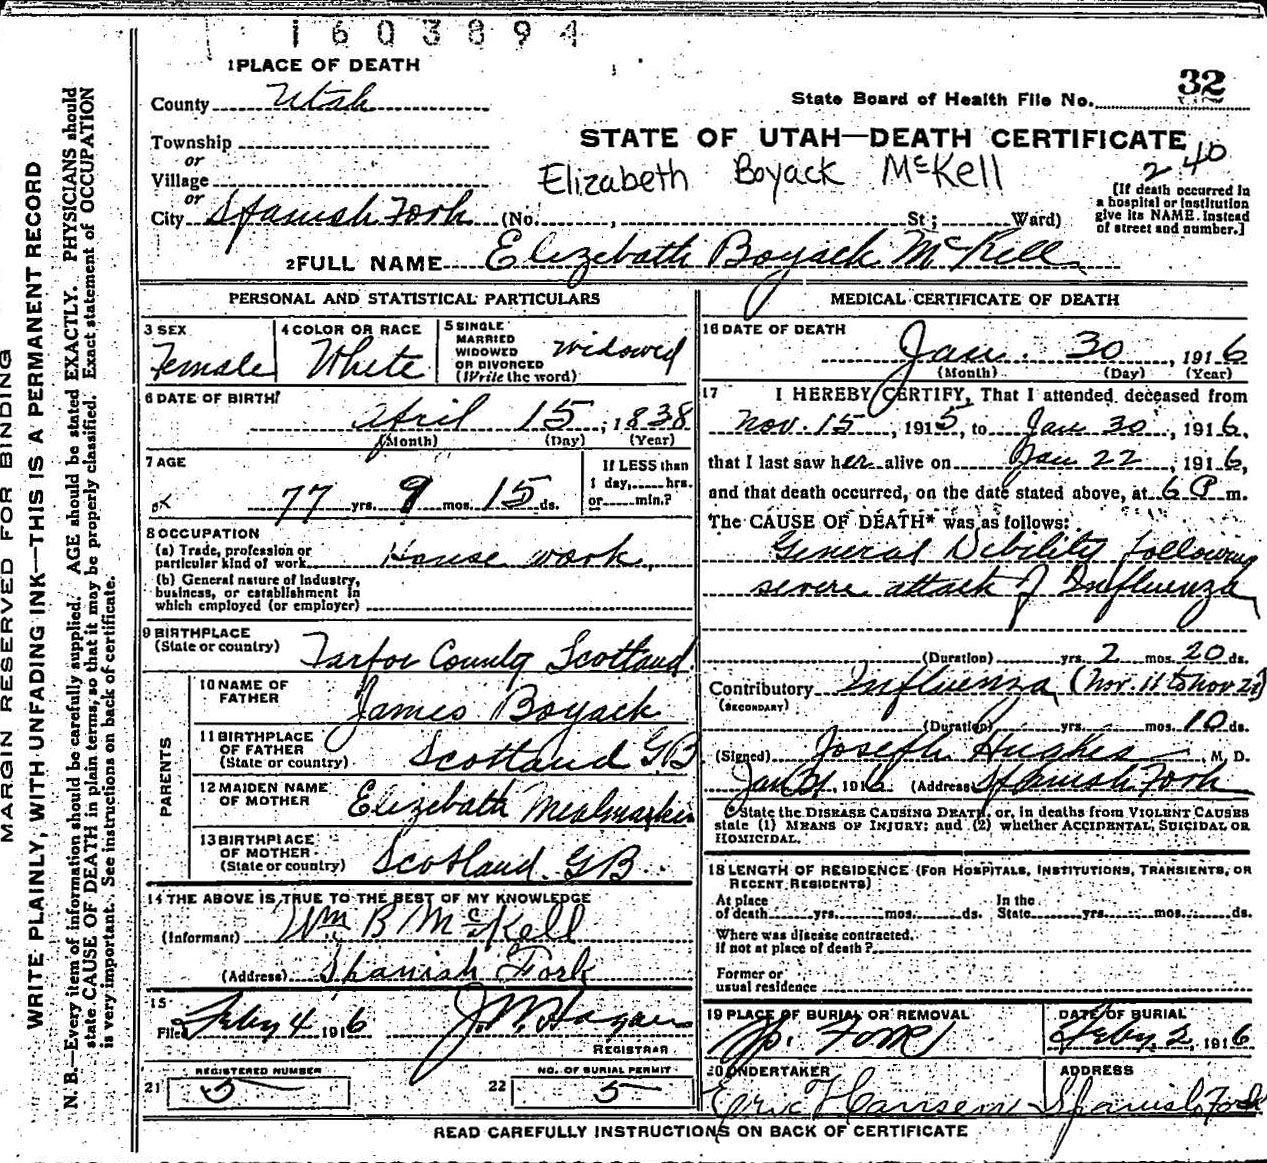 1603894
1 PLACE OF DEATH
32
County Utah
State Board of Health File No.
Township
STATE OF UTAH—DEATH CERTIFICATE
or
Village
Elizabeth Boyack McKell
240
or
City Spanish Fork (No. , St; Ward)
[If death occurred in
a hospital or institution
give its NAME. instead
of street and number.]
2 FULL NAME Elizebath Boyack McKell
PERSONAL AND STATISTICAL PARTICULARS
3 SEX
Female
4 COLOR OR RACE
White
5 SINGLE
MARRIED
WIDOWED
OR DIVORCED
(Write the word)
Widowed
6 DATE OF BIRTH
April 15, 1838
(Month) (Day) (Year)
7 AGE
77 yrs. 9 mos. 15 ds.
If LESS than
1 day, hrs.
or min.?
8 OCCUPATION
(a) Trade, profession or
particular kind of work House work
(b) General nature of industry,
business, or establishment in
which employed (or employer)
9 BIRTHPLACE
(State or country) Farfor County Scotland
PARENTS
10 NAME OF
FATHER James Boyack
11 BIRTHPLACE
OF FATHER
(State or country) Scotland G.B
12 MAIDEN NAME
OF MOTHER Elizebath Mealmarkin
13 BIRTHPLACE
OF MOTHER
(State or country) Scotland. G B
14 THE ABOVE IS TRUE TO THE BEST OF MY KNOWLEDGE
(Informant) Wm B McKell
(Address) Spanish Fork
15
Filed Feby 4 1916 J.W. Hagan
REGISTRAR
21 REGISTERED NUMBER
5
22 NO. OF BURIAL PERMIT
5
MEDICAL CERTIFICATE OF DEATH
16 DATE OF DEATH
Jan. 30, 1916
(Month) (Day) (Year)
17 I HEREBY CERTIFY, That I attended deceased from
Nov. 15, 1915, to Jan 30, 1916,
that I last saw her alive on Jan 22, 1916,
and that death occurred, on the date stated above, at 6 P m.
The CAUSE OF DEATH* was as follows:
General Debility following
severe attack of Influenza
(Duration) yrs. 2 mos. 20 ds.
Contributory Influenza (Nov. 11 to Nov 21)
(SECONDARY)
(Duration) yrs. mos. 10 ds.
(Signed) Joseph Hughes, M. D.
Jan 31, 1916 (Address) Spanish Fork
* State the DISEASE CAUSING DEATH, or, in deaths from VIOLENT CAUSES
state (1) MEANS OF INJURY; and (2) whether ACCIDENTAL, SUICIDAL OR
HOMICIDAL.
18 LENGTH OF RESIDENCE (FOR HOSPITALS, INSTITUTIONS, TRANSIENTS, OR
RECENT RESIDENTS)
At place
of death yrs. mos. ds.
In the
State yrs. mos. ds.
Where was disease contracted,
if not at place of death?
Former or
usual residence
19 PLACE OF BURIAL OR REMOVAL
Sp. Fork
DATE OF BURIAL
Feby 2, 1916
20 UNDERTAKER
Eric Hansen
ADDRESS
Spanish Fork
READ CAREFULLY INSTRUCTIONS ON BACK OF CERTIFICATE
MARGIN RESERVED FOR BINDING
WRITE PLAINLY, WITH UNFADING INK—THIS IS A PERMANENT RECORD
N. B.—Every item of information should be carefully supplied. AGE should be stated EXACTLY. PHYSICIANS should
state CAUSE OF DEATH in plain terms, so that it may be properly classified. Exact statement of OCCUPATION
is very important. See instructions on back of certificate.